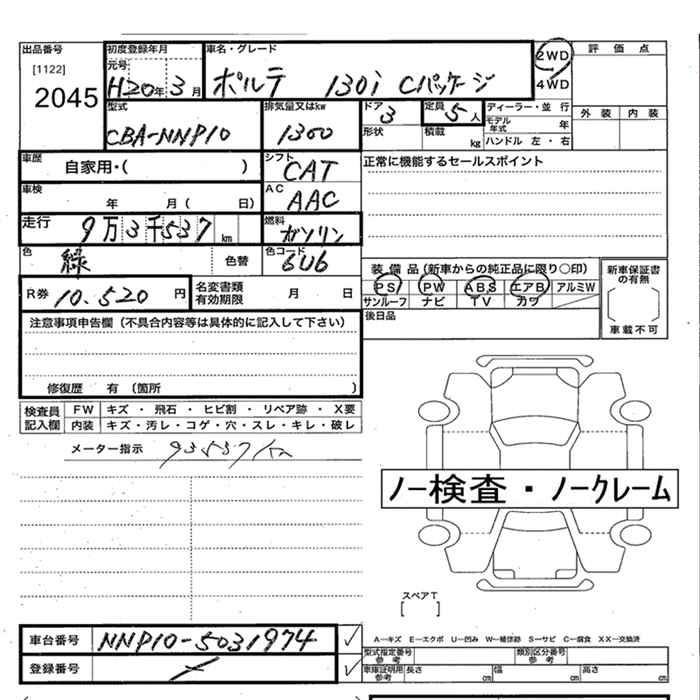 出品番号 初度登録年月 車名・グレード 2WD 評価点
[1122] 元号 4WD
2045 H20年 3月 ポルテ 130i Cパッケージ
型式 排気量又はkw ドア 定員 ディーラー・並行 外装 内装
CBA-NNP10 1300 3 5人 モデル年式 年
形状 積載 kg ハンドル 左・右
車歴 自家用・( ) シフト CAT 正常に機能するセールスポイント
車検 年 月( 日) AC AAC
走行 9万3千537km 燃料 ガソリン
色 緑 色替 色コード 6U6
装備品(新車からの純正品に限り○印) 新車保証書の有無
R券 10.520円 名変書類有効期限 月 日 PS PW ABS エアB アルミW
サンルーフ ナビ TV カワ 車載不可
注意事項申告欄(不具合内容等は具体的に記入して下さい) 後日品
修復歴 有 (箇所 )
検査員記入欄 FW キズ・飛石・ヒビ割・リペア跡・X要
内装 キズ・汚レ・コゲ・穴・スレ・キレ・破レ
メーター指示 93537km
ノー検査・ノークレーム
スペアT
[ ]
車台番号 NNP10-5031974 A−キズ E−エクボ U−凹み W−補修跡 S−サビ C−腐食 XX−交換済
登録番号 型式指定番号 参考 類別区分番号 参考
車庫証明用 参考 長さ cm 幅 cm 高さ cm